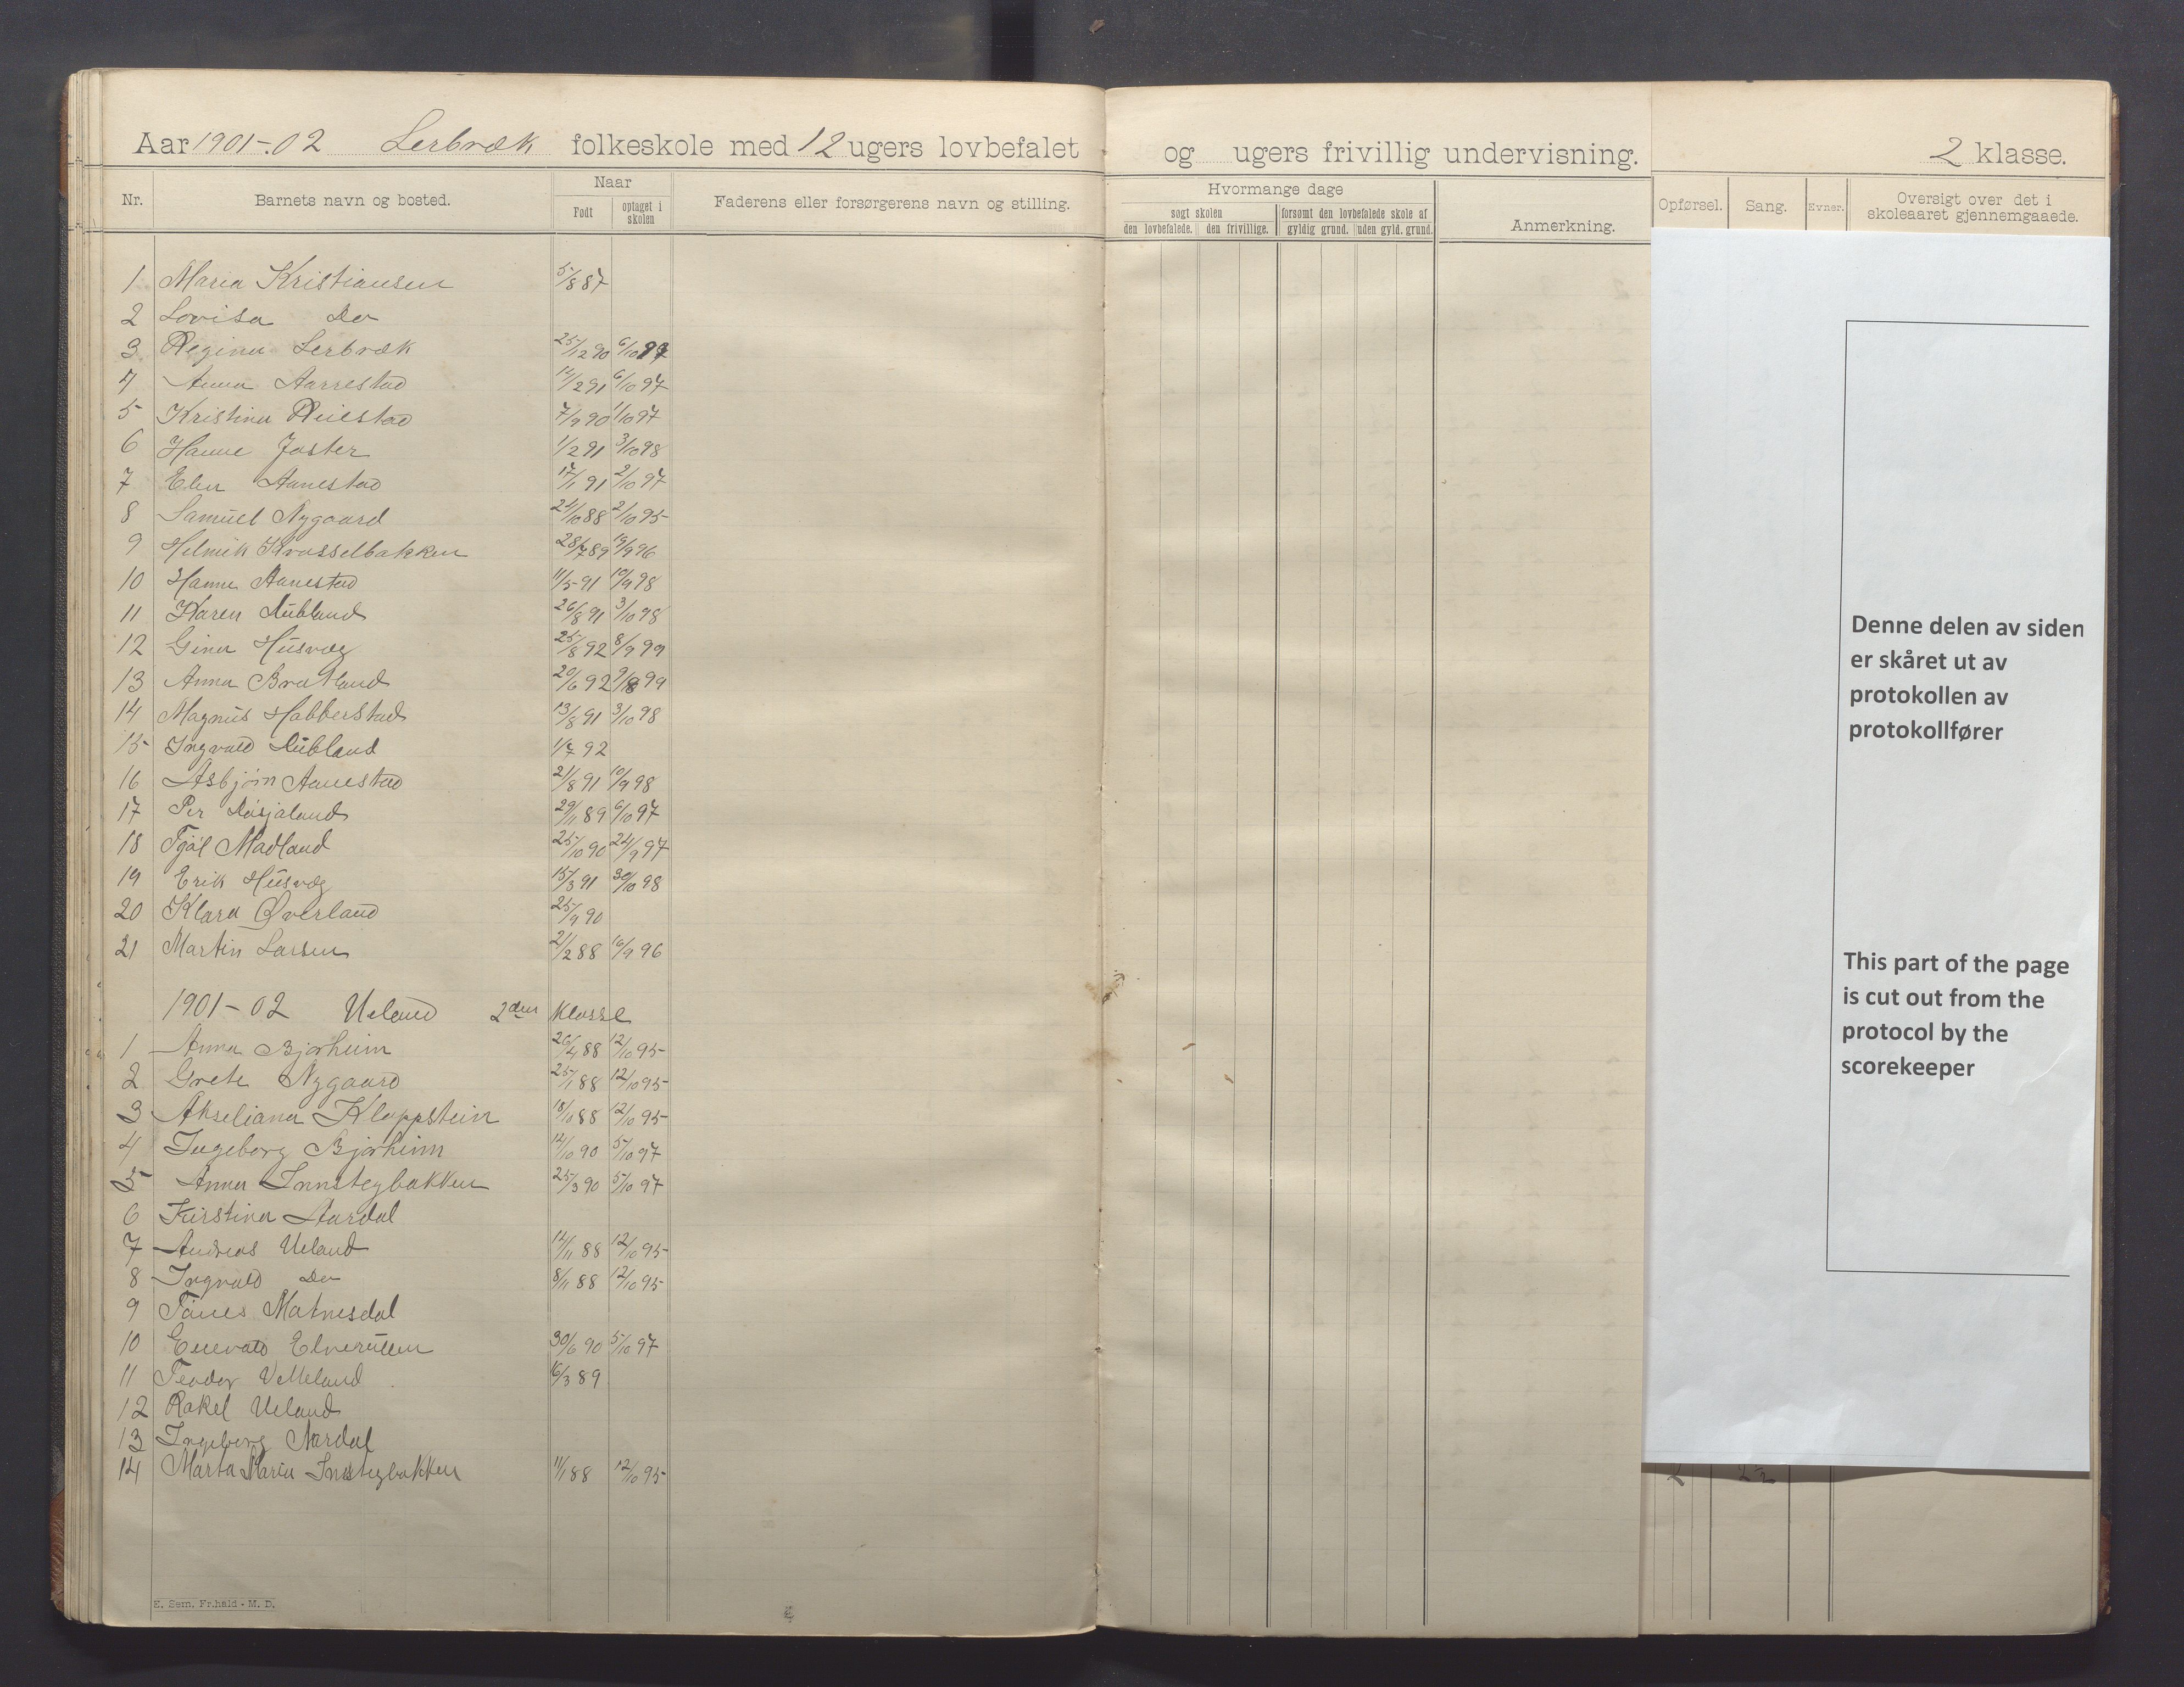 Aar 1901-02 Lerbræk folkeskole med 12 ugers lovbefalet og ugers frivillig undervisning. 2 klasse.
Nr. Barnets navn og bosted. Naar Født optaget i skolen Faderens eller forsørgerens navn og stilling. Hvormange dage søgt skolen den lovbefalede. den frivillige. forsømt den lovbefalede skole af gyldig grund. uden gyld. grund. Anmerkning. Opførsel. Sang. Evner. Oversigt over det i skoleaaret gjennemgaaede.
1 Maria Kristiansen 5/8 87
2 Lovisa Do
3 Regina Lerbræk 25/12 90 6/10 97
4 Anna Aarrestad 14/2 91 6/10 97
5 Kristina Reiestad 7/9 90 1/10 97
6 Hanne Joster 1/2 91 3/10 98
7 Elen Aanestad 17/1 91 2/10 97
8 Samuel Nygaard 24/10 88 2/10 95
9 Helmik Krosselbakken 28/7 89 19/9 96
10 Hanne Aanestad 11/5 91 10/9 98
11 Karen Dubland 26/8 91 3/10 98
12 Gina Husvæg 25/8 92 8/9 99
13 Anna Bratland 20/6 92 99
14 Magnus Habberstad 13/8 91 3/10 98
15 Ingvald Dubland 1/7 92
16 Asbjørn Aanestad 21/8 91 10/9 98
17 Per Døsjaland 29/11 89 6/10 97
18 Tjøl Madland 25/10 90 24/9 97
19 Erik Husvæg 15/3 91 30/10 98
20 Klara Øverland 25/9 90
21 Martin Larsen 21/2 88 16/9 96
1901-02 Ueland 2den Klasse
1 Anna Bjørheim 26/4 88 12/10 95
2 Grete Nygaard 25/1 88 12/10 95
3 Akseliana Kloppstein 18/10 88 12/10 95
4 Ingeborg Bjørheim 12/10 90 5/10 97
5 Anna Innstegbakken 25/3 90 5/10 97
6 Kirstina Aardal
7 Andreas Ueland 12/11 88 12/10 95
8 Ingvald Do 8/11 88 12/10 95
9 Tønes Matnesdal
10 Enevald 30/6 90 5/10 97
11 Teodor Velleland 16/3 89
12 Rakel Ueland
13 Ingeborg Aardal
14 Marta Maria Innstegbakken 11/1 88 12/10 95
E. Sem. Fr.hald - M. D.
Denne delen av siden
er skåret ut av
protokollen av
protokollfører
This part of the page
is cut out from the
protocol by the
scorekeeper